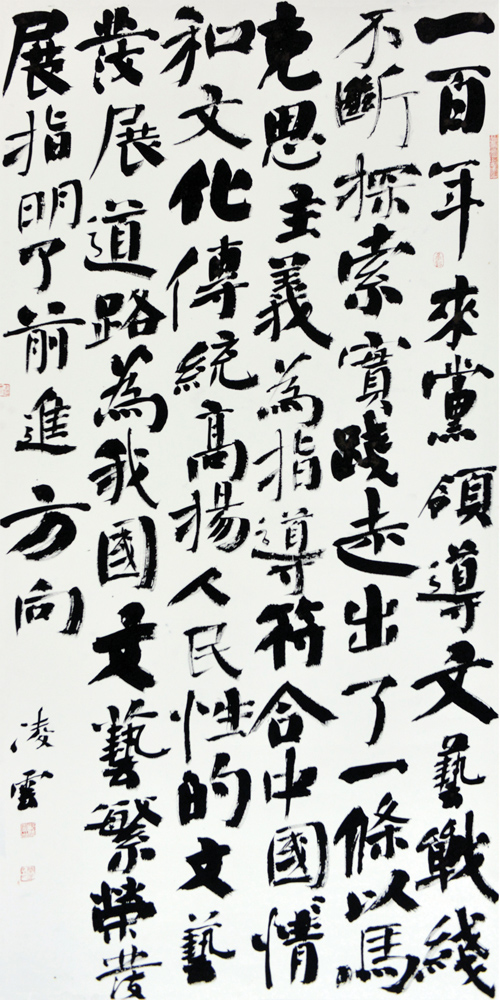 一百年來黨領導文藝戰綫
不斷探索實踐走出了一條以馬
克思主義為指導符合中國情
和文化傳統高揚人民性的文藝
發展道路為我國文藝繁榮發
展指明了前進方向
凌雲